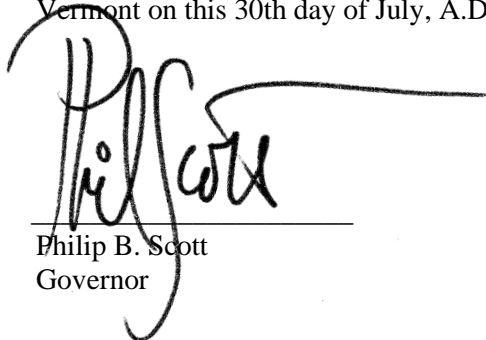 Vermont on this 30th day of July, A.D
Phil Scott
Philip B. Scott
Governor